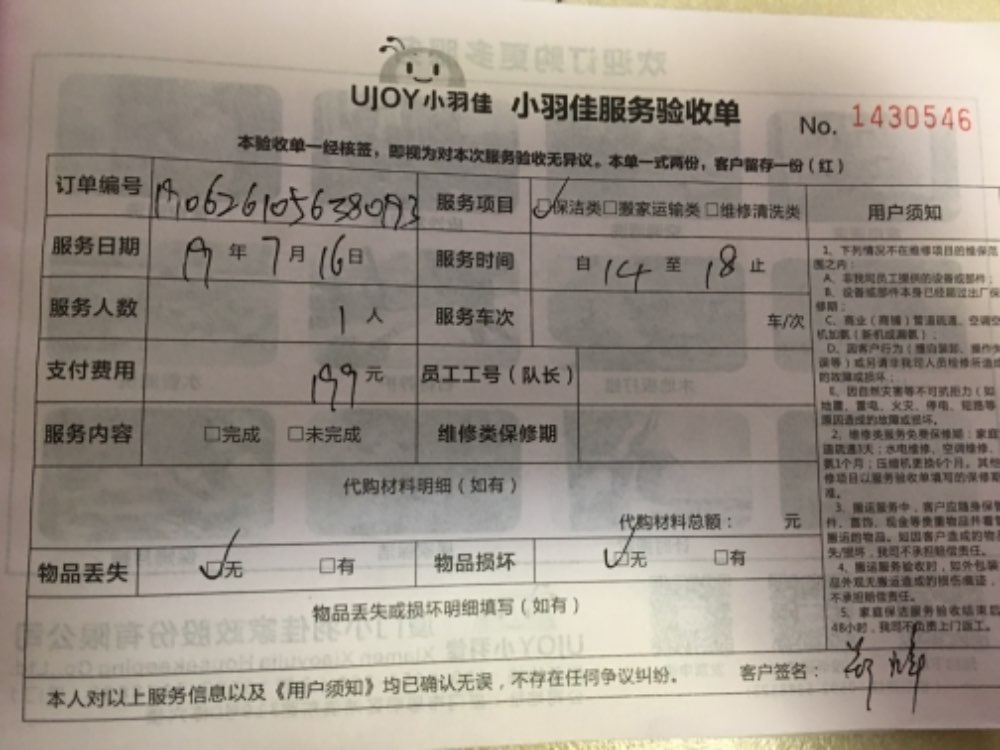 UJOY小羽佳 小羽佳服务验收单 No. 1430546
本验收单一经核签，即视为对本次服务验收无异议。本单一式两份，客户留存一份（红）
订单编号 190626105638093 服务项目 ☑保洁类□搬家运输类□维修清洗类 用户须知
服务日期 19 年 7 月 16 日 服务时间 自 14 至 18 止
服务人数 1 人 服务车次 车/次
支付费用 199 元 员工工号（队长）
服务内容 □完成 □未完成 维修类保修期
代购材料明细（如有）
代购材料总额： 元
物品丢失 ☑无 □有 物品损坏 ☑无 □有
物品丢失或损坏明细填写（如有）
本人对以上服务信息以及《用户须知》均已确认无误，不存在任何争议纠纷。 客户签名：
1、下列情况不在维修项目的维保范
围之内：
A、非我司员工提供的设备或部件；
B、设备或部件本身已经超过出厂保
修期；
C、商业（商铺）管道疏通、空调空
机加氨（新机或漏氨）；
D、因客户行为（擅自装卸、操作失
误等）或另请非我司人员检修所造成
的故障或损坏；
E、因自然灾害等不可抗拒力（如
地震、雷电、火灾、停电、短路等
原因造成的故障或损坏。
2、维修类服务免费保修期：家庭
道疏通3天；水电维修、空调维修、
氨1个月；压缩机更换6个月。其他
修项目以服务验收单填写的保修期
准。
3、搬运服务中，客户应随身保管
件、首饰、现金等贵重物品并看
搬运的物品。如因客户造成的物品
失/损坏，我司不承担赔偿责任。
4、搬运服务验收时，如外包装
品外观无搬运造成的损伤痕迹，
不承担赔偿责任。
5、家庭保洁服务验收结束后
48小时，我司不负责上门返工。